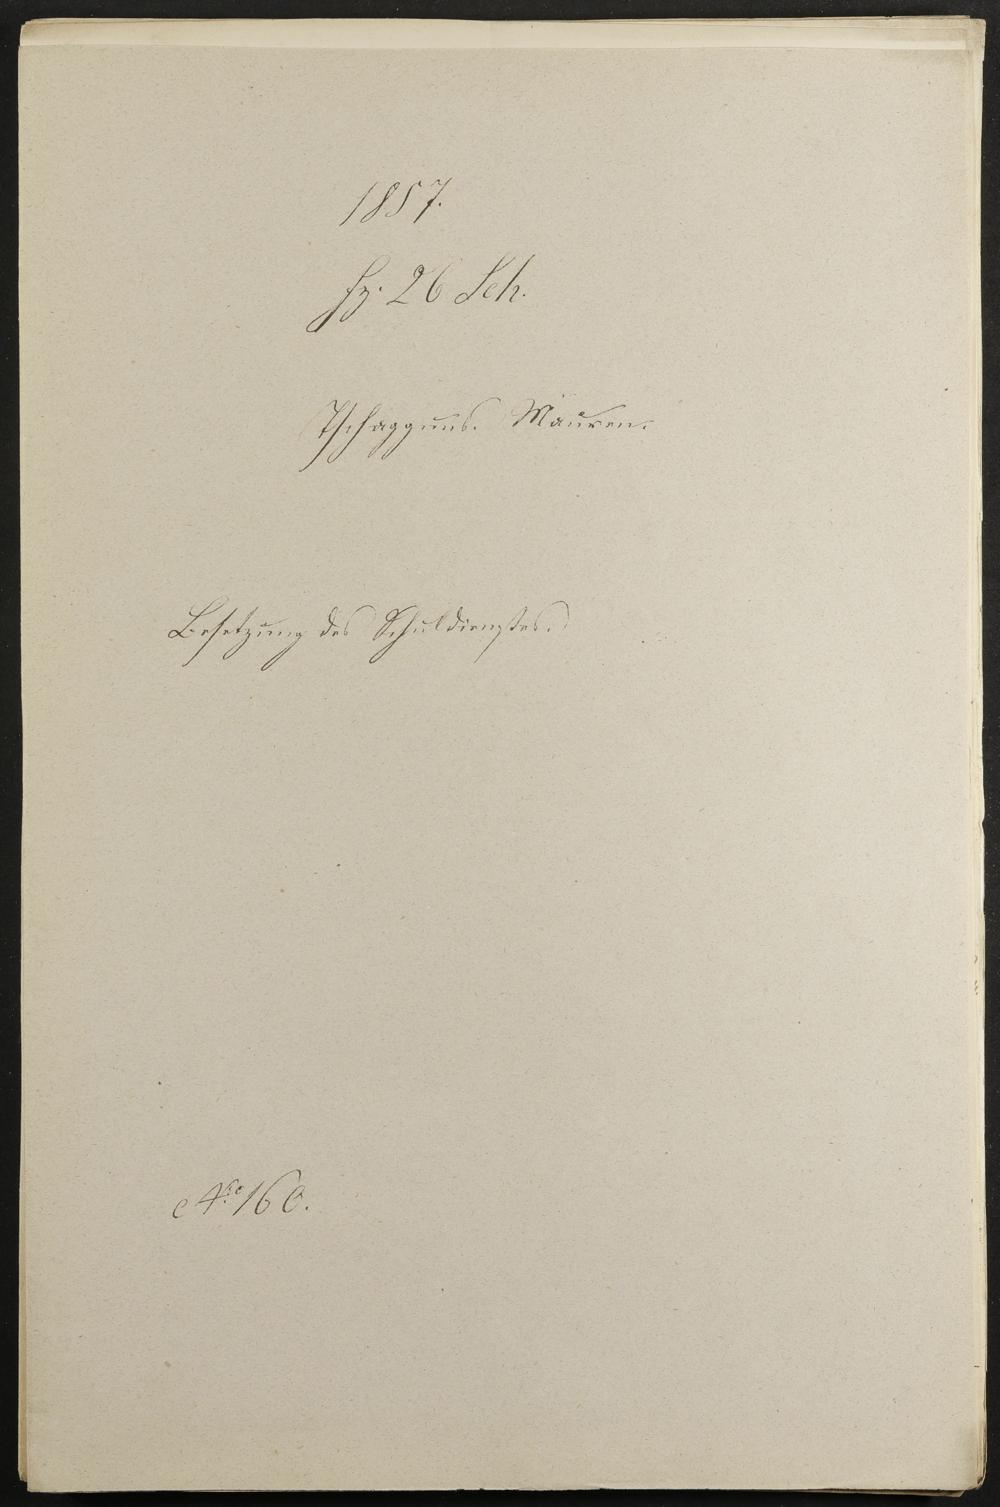 1857.
Fz. 26 Sch.
Tschagguns. Mauren.
Besetzung des Schuldienstes.
No 160.